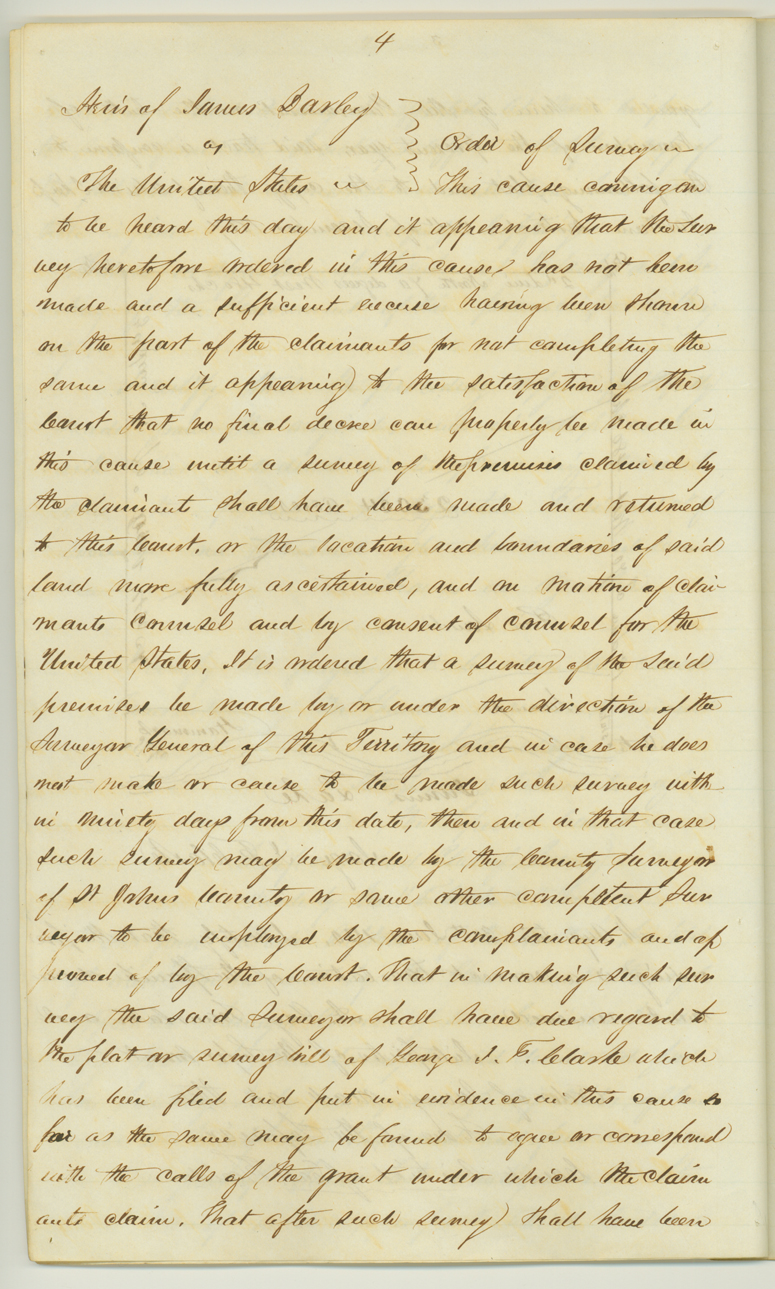 4
Heirs of James Darley
vs
Order of Survey
The United States
This cause coming on
to be heard this day and it appearing that the Sur
vey heretofore ordered in this cause has not been
made and a sufficient excuse having been shown
on the part of the claimants for not completing the
same and it appearing to the satisfaction of the
Court that no final decree can properly be made in
this cause until a survey of the premises claimed by
the claimants shall have been made and returned
to this Court, or the location and boundaries of said
land more fully ascertained, and on motion of clai-
mants Counsel and by consent of counsel for the
United States, It is ordered that a survey of the said
premises be made by or under the direction of the
Surveyor General of this Territory and in case he does
not make or cause to be made such survey with
in ninety days from this date, then and in that case
such survey may be made by the County Surveyor
of St Johns County or some other competent Sur
veyor to be employed by the complainants and ap
proved of by the Court. That in making such sur
vey the said Surveyor shall have due regard to
the plat or survey bill of George I. F. Clarke which
has been filed and put in evidence in this cause so
far as the same may be found to agree or correspond
with the calls of the grant under which the claim
ants claim. That after such survey shall have been